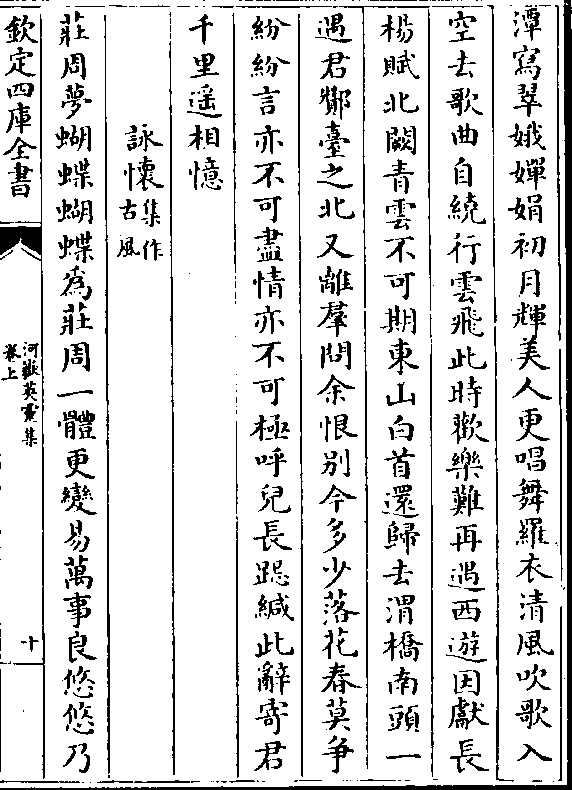 潭寫翠娥嬋娟初月輝美人更唱舞羅衣清風吹歌入
空去歌曲自繞行雲飛此時歡樂難再遇西遊因獻長
楊賦北闕青雲不可期東山白首還歸去渭橋南頭一
遇君酇臺之北又離羣問余恨別今多少落花春莫爭
紛紛言亦不可盡情亦不可極呼兒長跽緘此辭寄君
千里遥相憶
詠懷集作古風
莊周夢蝴蝶蝴蝶為莊周一體更變易萬事良悠悠乃
欽定四庫全書
河嶽英靈集
卷上
十